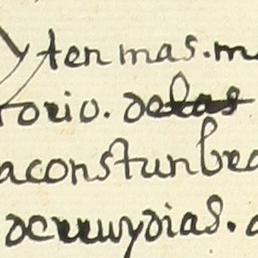 yten mas. m
torio. de las
aconstunbra
derruydias.